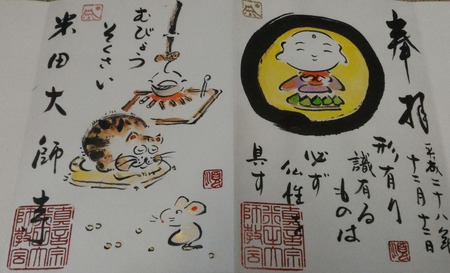 奉拝
平成二十八年
十二月十二日
形有り
識有る
ものは
必ず
仏性を
具す
むびょう
そくさい
米田大師寺